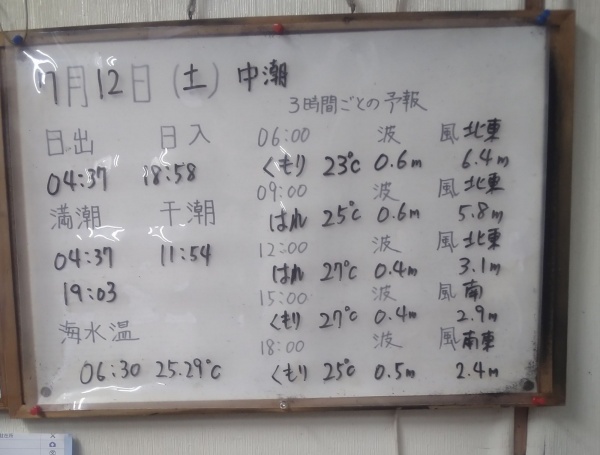 7月12日(土) 中潮
日出 日入
04:37 18:58
満潮 干潮
04:37 11:54
19:03
海水温
06:30 25.29℃
3時間ごとの予報
06:00 波 風 北東
くもり 23℃ 0.6m 6.4m
09:00 波 風 北東
はれ 25℃ 0.6m 5.8m
12:00 波 風 北東
はれ 27℃ 0.4m 3.1m
15:00 波 風 南
くもり 27℃ 0.4m 2.9m
18:00 波 風 南東
くもり 25℃ 0.5m 2.4m